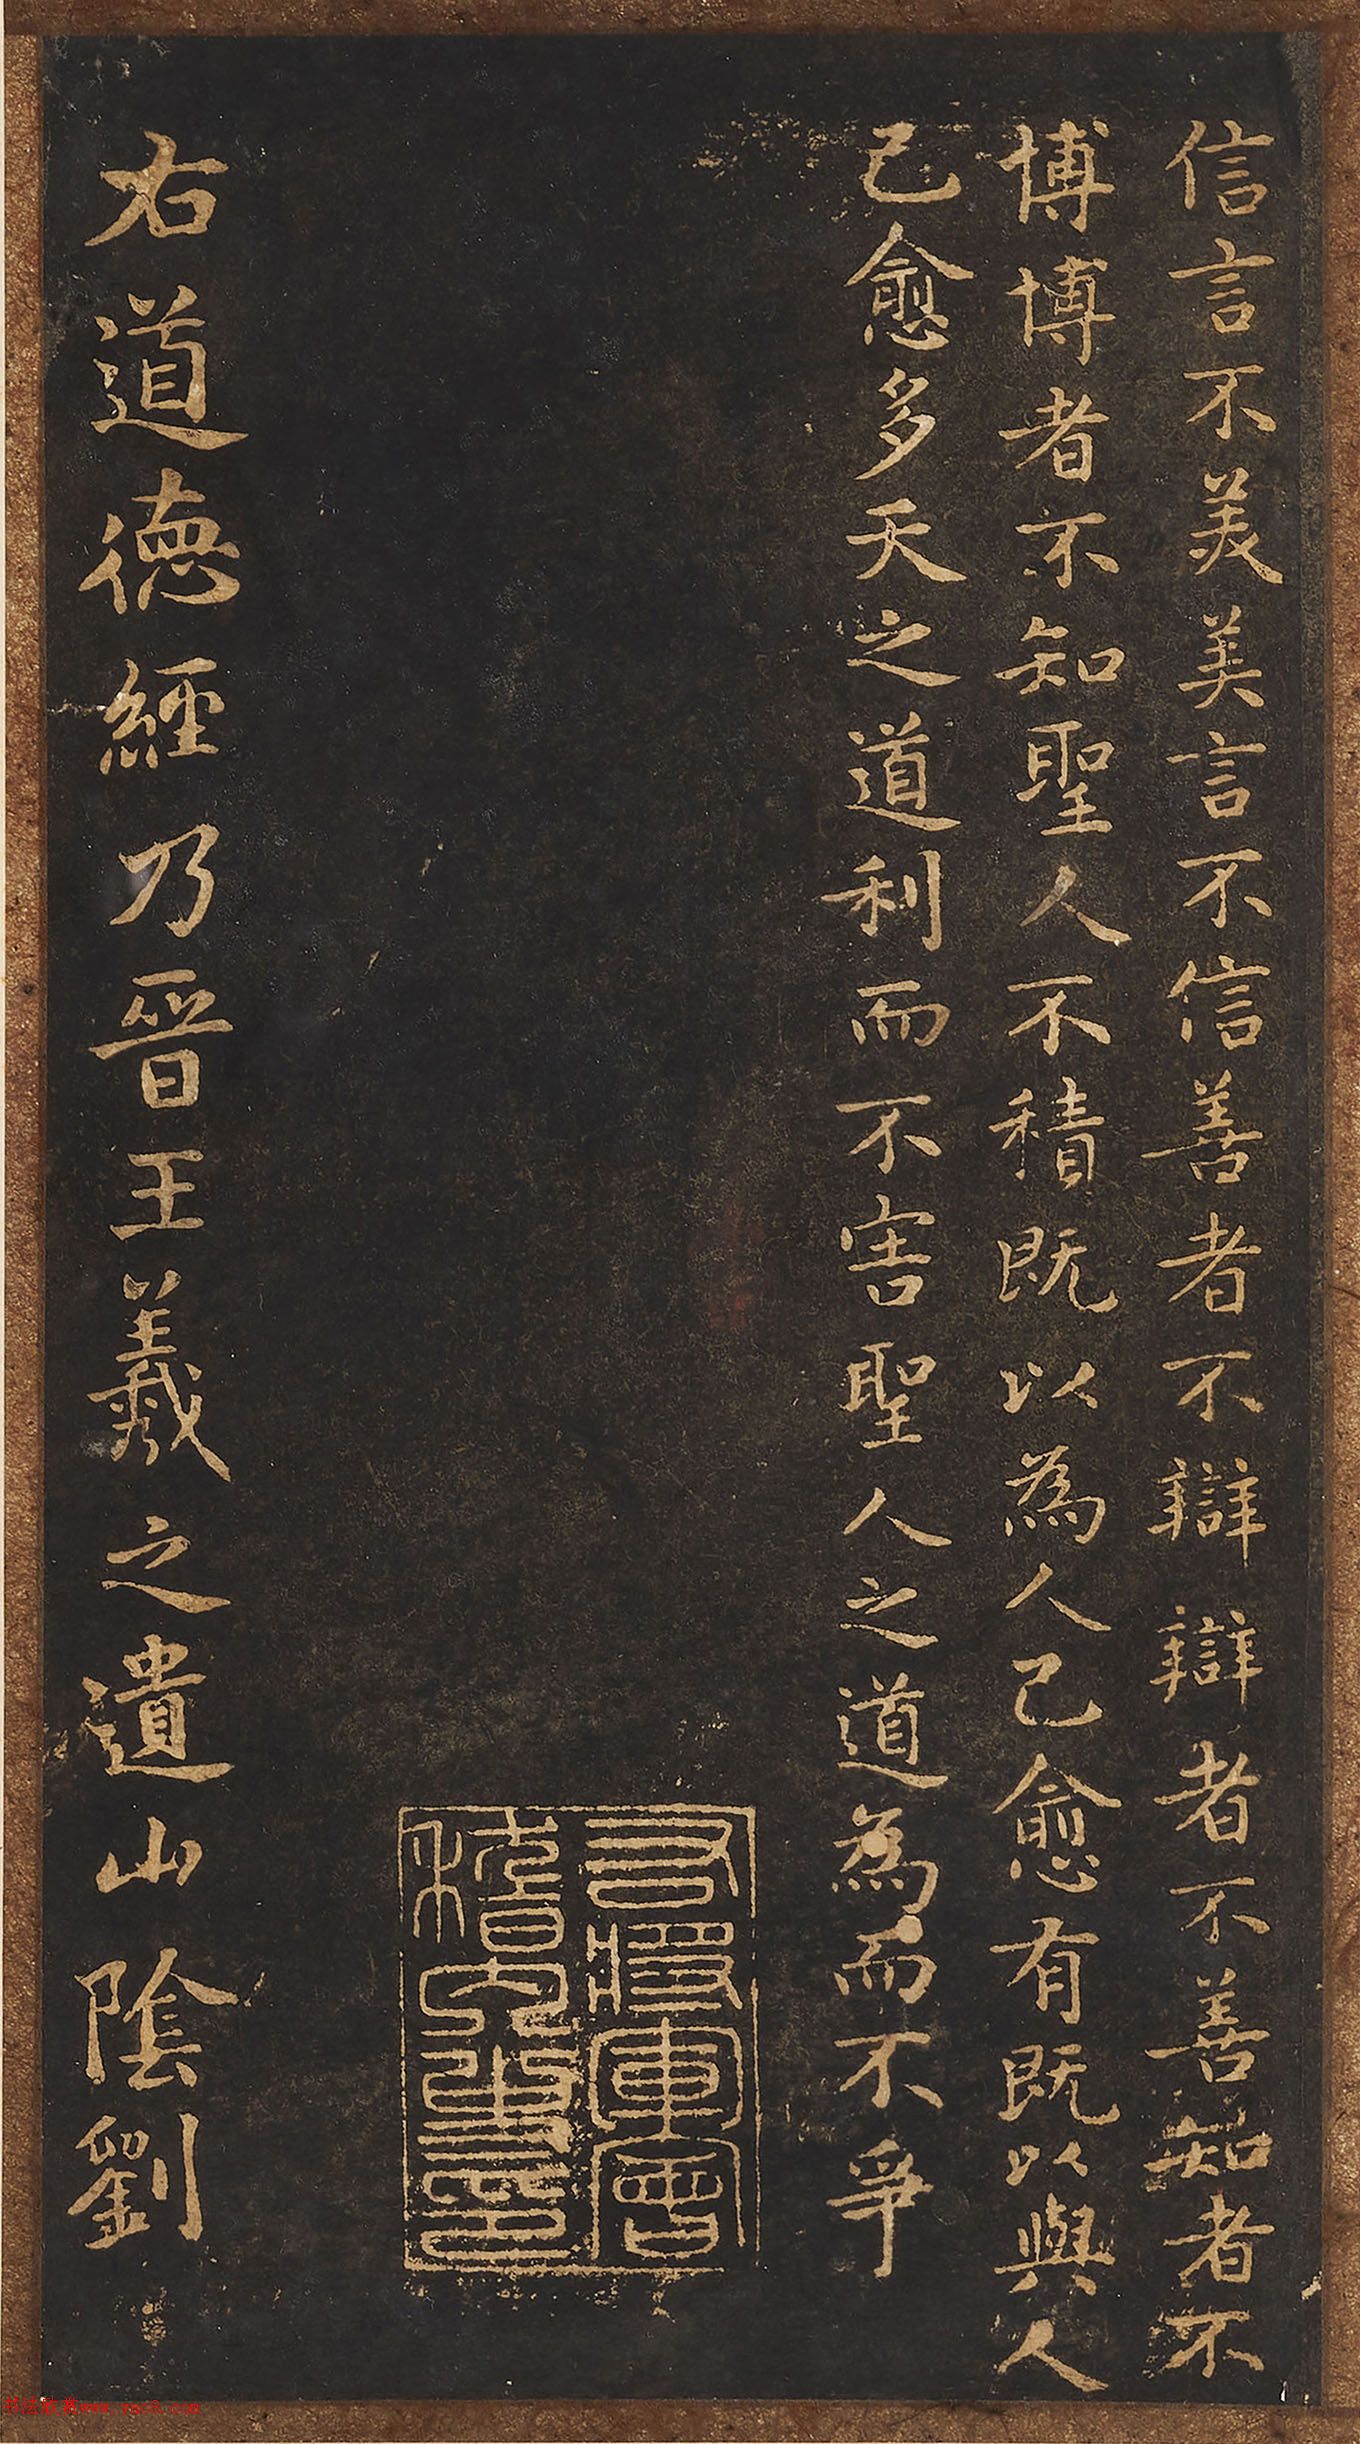 信言不美美言不信善者不辯辯者不善知者不
博博者不知聖人不積既以為人己愈有既以與人
己愈多天之道利而不害聖人之道為而不爭
右將軍會
稽內史印
右道德經乃晉王羲之遺山陰劉
书法欣赏www.yac8.com